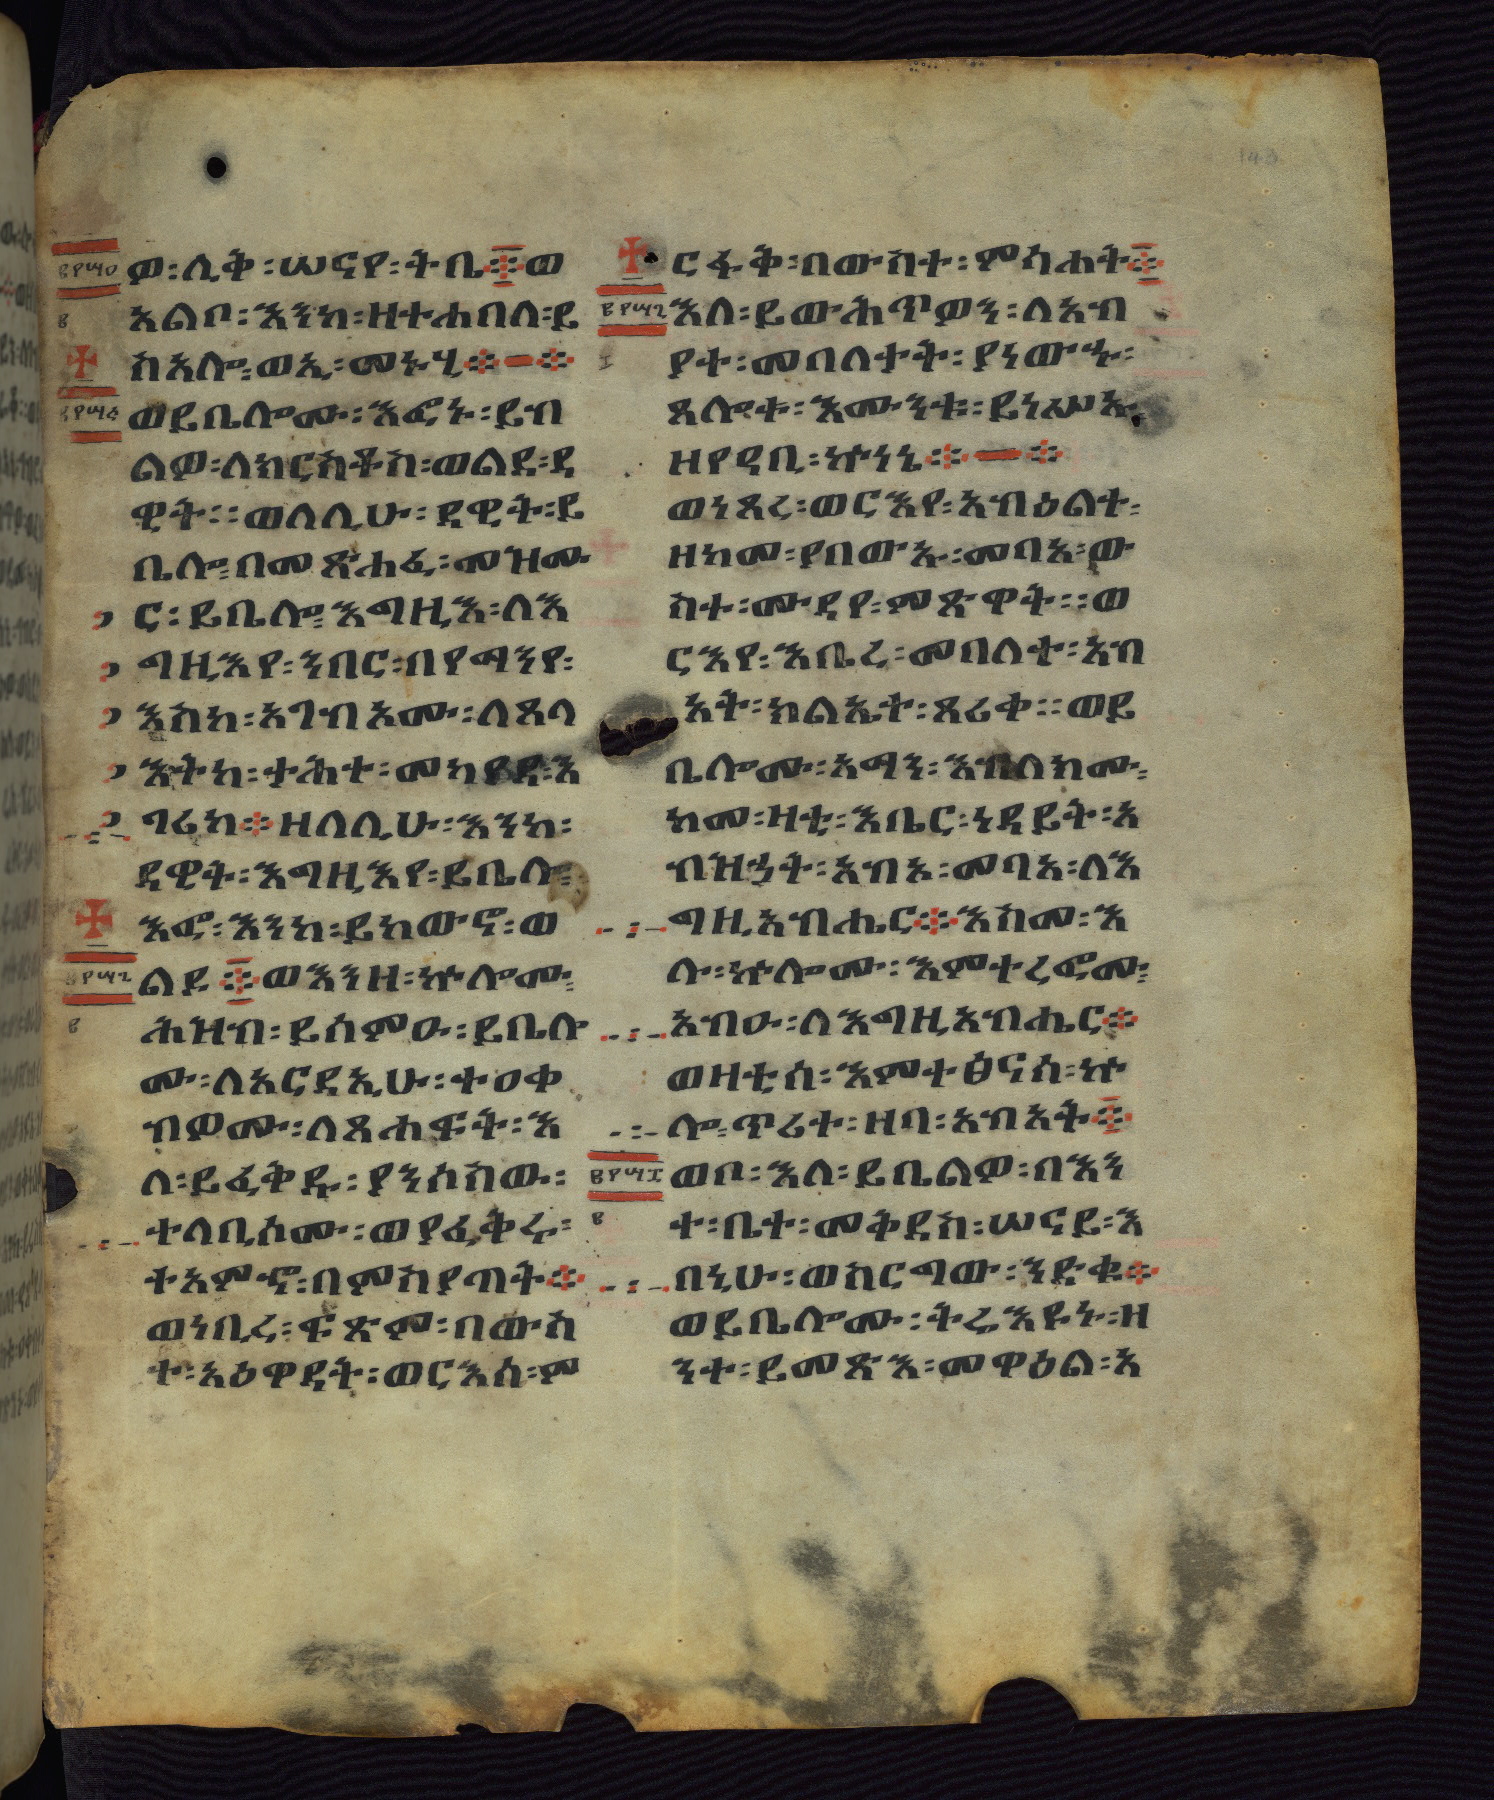 ዎ፡ሊቅ፡ሠናየ፡ትቤ፨ወ
አልቦ፡እንከ፡ዘተሐበለ፡ይ
ስአሎ፡ወኢ፡መኑሂ፨—፨
ወይቤሎሙ፡እፎኑ፡ይብ
ልዎ፡ለክርስቶስ፡ወልደ፡ዳ
ዊት፡፡ወለሊሁ፡ዳዊት፡ይ
ቤሎ፡በመጽሐፈ፡መዝሙ
ር፡ይቤሎ፡እግዚእ፡ለእ
ግዚእየ፡ንበር፡በየማንየ፡
እስከ፡አገብኦሙ፡ለጸላ
እትከ፡ታሕተ፡መከየደ፡እ
ገሪከ፨ዘለሊሁ፡እንከ፡
ዳዊት፡እግዚእየ፡ይቤሎ፡
እፎ፡እንከ፡ይከውኖ፡ወ
ልደ፨ወእንዘ፡ኵሎሙ፡
ሕዝብ፡ይሰምዑ፡ይቤሎ
ሙ፡ለአርዳኢሁ፡ተዐቀ
ብዎሙ፡ለጸሐፍት፡እ
ለ፡ይፈቅዱ፡ያንሶስው፡
ተላቢሶሙ፡ወያፈቅሩ፡
ተአምኖ፡በምስያጣት፨
ወነቢረ፡ፍጽመ፡በውስ
ተ፡አዕዋዳት፡ወርእሰ፡ም
ርፋቅ፡በውስተ፡ምሳሐት፨
እለ፡ይውሕጥዎን፡ለአብ
ያተ፡መበለታት፡ያነውኁ፡
ጸሎተ፡እሙንቱ፡ይነሥኡ
ዘየዳቢ፡ኵነኔ፨—፨
ወነጸረ፡ወርእየ፡አብዕልተ፡
ዘከመ፡ያበውኡ፡መባኦ፡ው
ስተ፡ሙዳየ፡ምጽዋት፡፡ወ
ርእየ፡እቤረ፡መበለተ፡አብ
አት፡ክልኤተ፡ጸሪቀ፡፡ወይ
ቤሎሙ፡አማን፡እብለክሙ፡
ከመ፡ዛቲ፡እቤር፡ነዳይት፡አ
ብዝኃት፡አብኦ፡መባአ፡ለእ
ግዚአብሔር፨እስመ፡እ
ሉ፡ኵሎሙ፡እምተረፎሙ፡
አብኡ፡ለእግዚአብሔር፨
ወዛቲሰ፡እምተፅናሰ፡ኵ
ሎ፡ጥሪተ፡ዘባ፡አብአት፨
ወቦ፡እለ፡ይቤልዎ፡በእን
ተ፡ቤተ፡መቅደስ፡ሠናይ፡እ
በኒሁ፡ወስርግው፡ንድቁ፨
ወይቤሎሙ፡ትሬእዩኑ፡ዘ
ንተ፡ይመጽእ፡መዋዕል፡አ